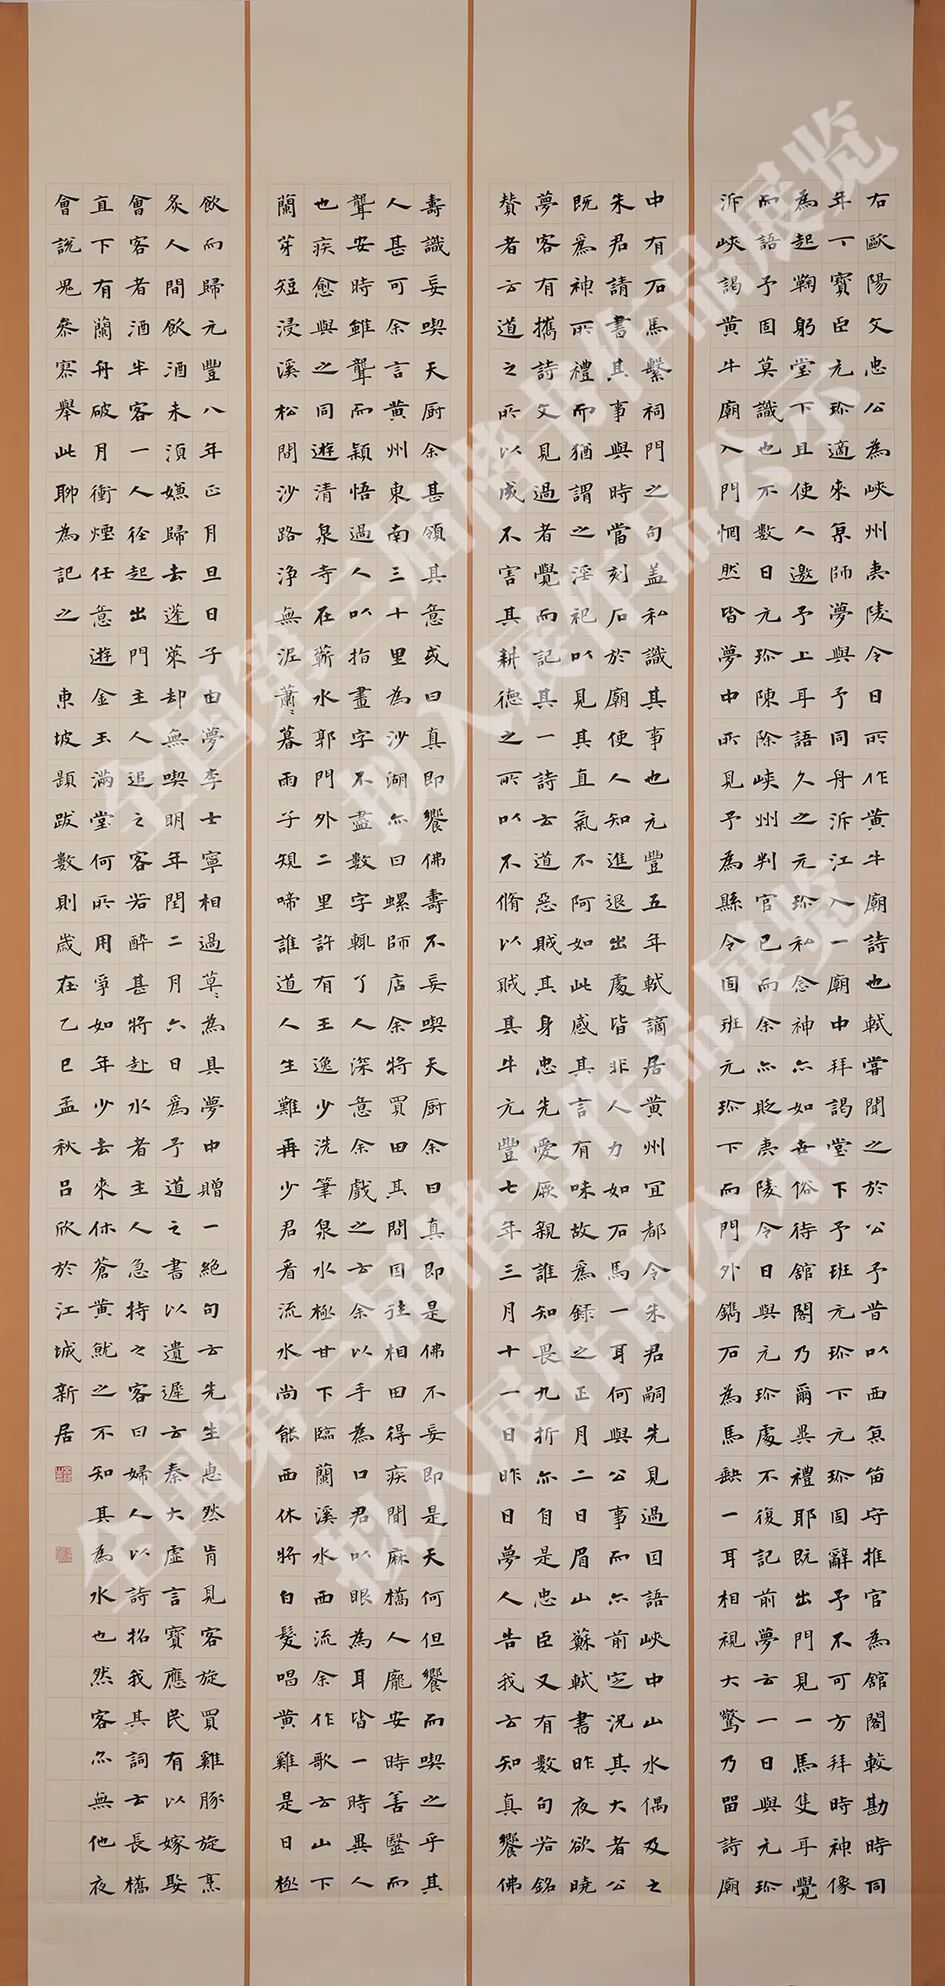 右歐陽文忠公為峽州夷陵令日所作黃牛廟詩也軾嘗聞之於公予昔以西亰留守推官為舘閣較勘時同
年丁寶臣元珍適來亰師夢與予同舟泝江入一廟中拜謁堂下予班元珍下元珍固辭予不可方拜時神像
為起鞠躬堂下且使人邀予上耳語久之元珍私念神亦如世俗待舘閣乃爾異禮耶既出門見一馬隻耳覺
而語予固莫識也不數日元珍陳除峽州判官已而余亦貶夷陵令日與元珍處不復記前夢云一日與元珍
泝峽謁黃牛廟入門惘然皆夢中所見予為縣令固班元珍下而門外鐫石為馬缺一耳相視大驚乃留詩廟
中有石馬繫祠門之句盖私識其事也元豐五年軾謫居黃州宜都令朱君嗣先見過因語峽中山水偶及之
朱君請書其事與時當刻石於廟使人知進退出處皆非人力如石馬一耳何與公事而亦前定況其大者公
既為神所禮而猶謂之淫祀以見其直氣不阿如此感其言有味故為錄之正月二日眉山蘇軾書昨夜欲曉
夢客有攜詩文見過者覺而記其一詩云道惡賊其身忠先愛厥親誰知畏九折亦自是忠臣又有數句若銘
贊者云道之所以成不害其耕德之所以不脩以賊其牛元豐七年三月十一日昨日夢人告我云知真饗佛
壽識妄喫天厨余甚領其意或曰真即饗佛壽不妄喫天厨余曰真即是佛不妄即是天何但饗而喫之乎其
人甚可余言黃州東南三十里為沙湖亦曰螺師店余將買田其間因往相田得疾聞麻橋人龐安時善醫而
聾安時雖聾而穎悟過人以指畫字不盡數字輒了人深意余戲之云余以手為口君以眼為耳皆一時異人
也疾愈與之同遊清泉寺在蘄水郭門外二里許有王逸少洗筆泉水極甘下臨蘭溪水西流余作歌云山下
蘭芽短浸溪松間沙路淨無泥蕭〻暮雨子規啼誰道人生難再少君看流水尚能西休將白髮唱黃雞是日極
飲而歸元豐八年正月旦日子由夢李士寧相過草〻為具夢中贈一絕句云先生惠然肯見客旋買雞豚旋烹
炙人間飲酒未須嫌歸去蓬萊却無喫明年閏二月六日為予道之書以遺遲云秦大虛言寶應民有以嫁娶
會客者酒半客一人徑起出門主人追之客若醉甚將赴水者主人急持之客曰婦人以詩招我其詞云長橋
直下有蘭舟破月衝煙任意遊金玉滿堂何所用爭如年少去來休蒼黃就之不知其為水也然客亦無他夜
會說鬼參寥舉此聊為記之東坡題跋數則歲在乙巳孟秋呂欣於江城新居
全国第三届楷书作品展览
拟入展作品公示
全国第三届楷书作品展览
拟入展作品公示